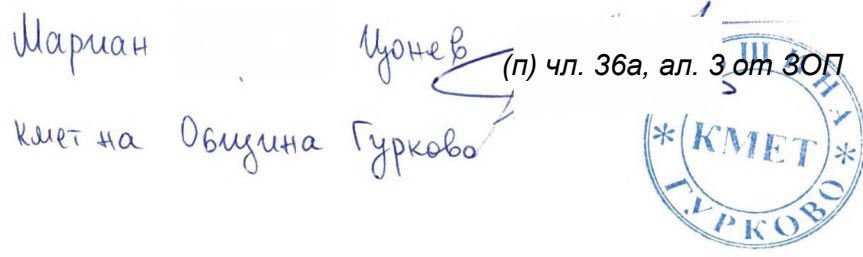 Мариан Цонев
(п) чл. 36а, ал. 3 от ЗОП
кмет на Община Гурково
КМЕТ
ГУРКОВО